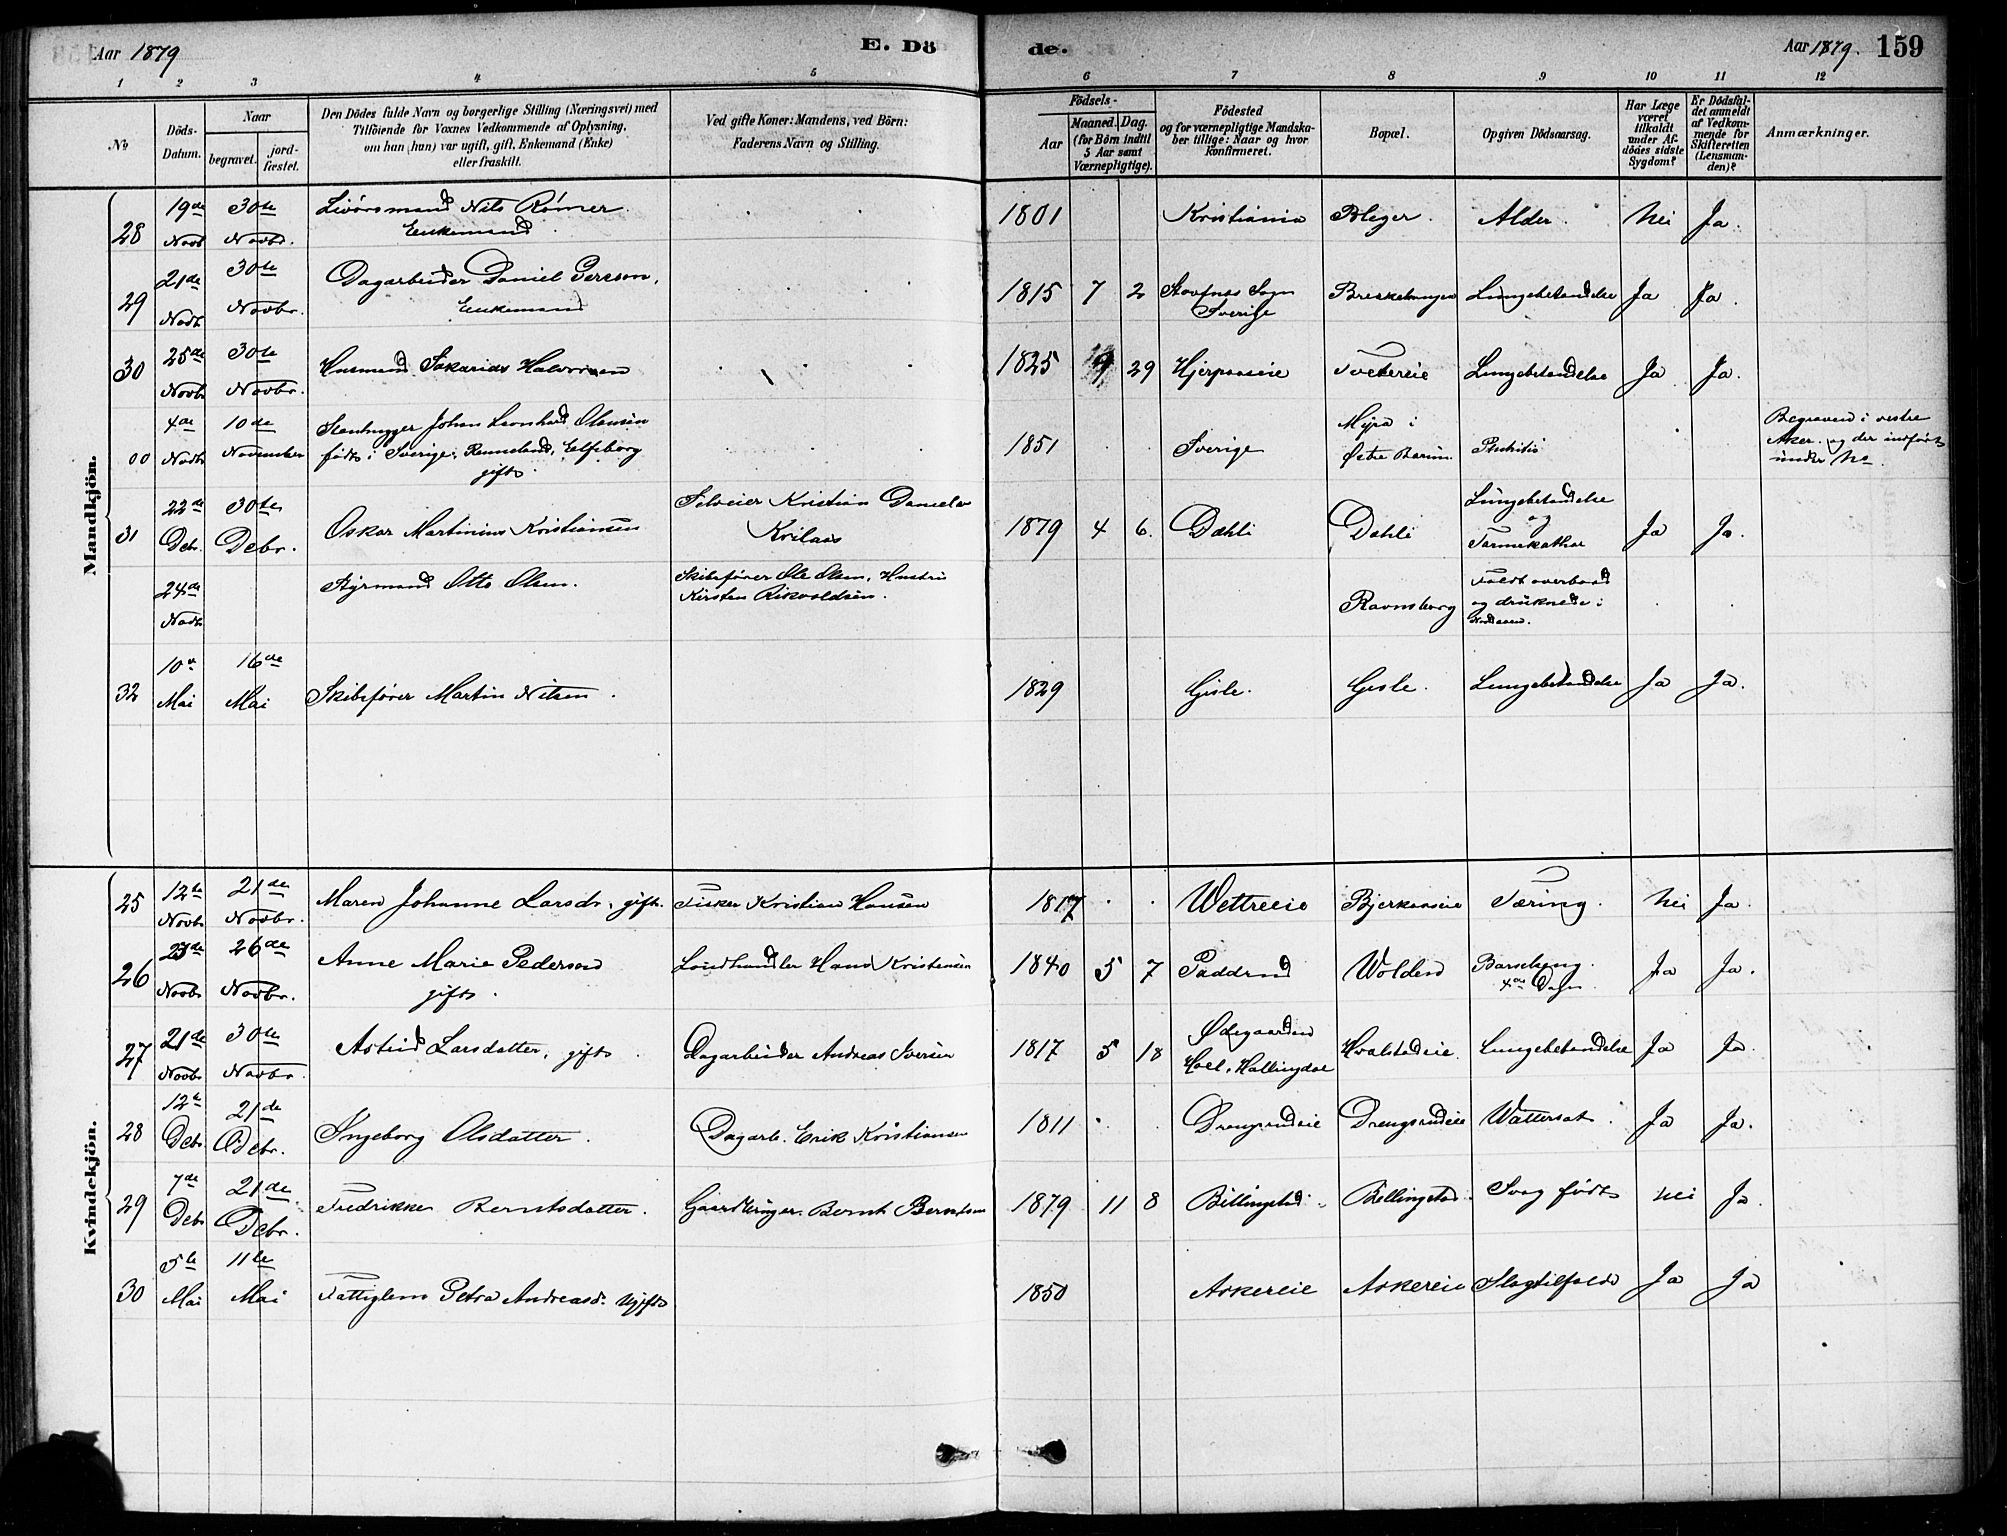 Aar 1879 E. Dö de. Aar 1879. 159
1 2 3 4 5 6 7 8 9 10 11 12
No
Döds-Datum.
Naar
begravet. jord-fæstet.
Den Dödes fulde Navn og borgerlige Stilling (Næringsvei) med
Tilföiende for Voxnes Vedkommende af Oplysning,
om han (hun) var ugift, gift, Enkemand (Enke)
eller fraskilt.
Ved gifte Koner: Mandens, ved Börn:
Faderens Navn og Stilling.
Födsels-
Aar
Maaned. Dag.
(for Börn indtil
5 Aar samt
Værnepligtige).
Födested
og for værnepligtige Mandska-
ber tillige: Naar og hvor
konfirmeret.
Bopæl.
Opgiven Dödsaarsag.
Har Læge
været
tilkaldt
under Af-
dödes sidste
Sygdom?
Er Dödsfal-
det anmeldt
af Vedkom-
mende for
Skifteretten
(Lensman-
den)?
Anmærkninger.
Mandkjön.
28 19de Novb 30te Novbr. Nils Rømer
Enkemand
1801 Kristiania Bleger. Alder. Nei Ja.
29 21de Novb. 30te Novbr. Dagarbeider Daniel Persson,
Enkemand
1815 7 2 Sogn
Sverige Lungebetændelse Ja Ja.
30 25de Novb 30te Novbr. Husmand Sakarias Halvorsen
1825 9 29 Hjerpaaseie Tveter­eie Lungebetændelse Ja Ja.
00 4de Novb 10de November Stenhugger Johan Leonhard Olausen
født i Sverige, Elfsborg
gift.
1851 Sverige Myra i
Østre Bærum
Begraven i vestre
Aker og der indført
under No
31 22de Debr. 30te Debr. Oskar Martinius Kristiansen Selveier Kristian
1879 4 6. Dæhli Dæhli Lungebetændelse
og
Tarmekathar Ja Ja.
24de Novb Styrmand Otto Olsen. Skibsfører Ole Olsen, Hustru
Kirsten
Ravnsborg Faldt overbord
og druknede i
32 10de Mai 16de Mai Skibsfører Martin Nilsen.
1829 Gisle. Gisle. Lungebetændelse Ja Ja.
Kvindekjön.
25 12te Novb 21de Novbr. Maren Johanne Larsdr. gift. Fisker Kristian Hansen
1817 Wettreeie Bjerkaaseie Tæring. Nei Ja.
26 23de Novb 26de Novbr. Anne Marie Pedersen
gift. Landhandler Hans Kristensen
1840 5 7 Paddrud Wolden Barselseng. Ja Ja.
27 21de Novb 30te Novbr Astrid Larsdatter, gift Dagarbeider Andreas Iversen
1817 5 18 Ødegaarden
Hoel, Hallingdal Hvalstadeie. Lungebetændelse Ja Ja.
28 12te Debr 21de Debr. Ingeborg Olsdatter. Dagarb. Erik Kristiansen
1811 Drengsrudeie Drengsrudeie Wattersot. Ja Ja.
29 7de Debr 21de Debr. Fredrikke Berntsdatter. Bernt Berntsen
1879 11 8 Billingstad Billingstad Svag født Nei Ja.
30 5te Mai 11te Mai Fattiglem Petra Andreasd. Ugift
1850 Askereie Askereie Slagtilfælde Ja Ja